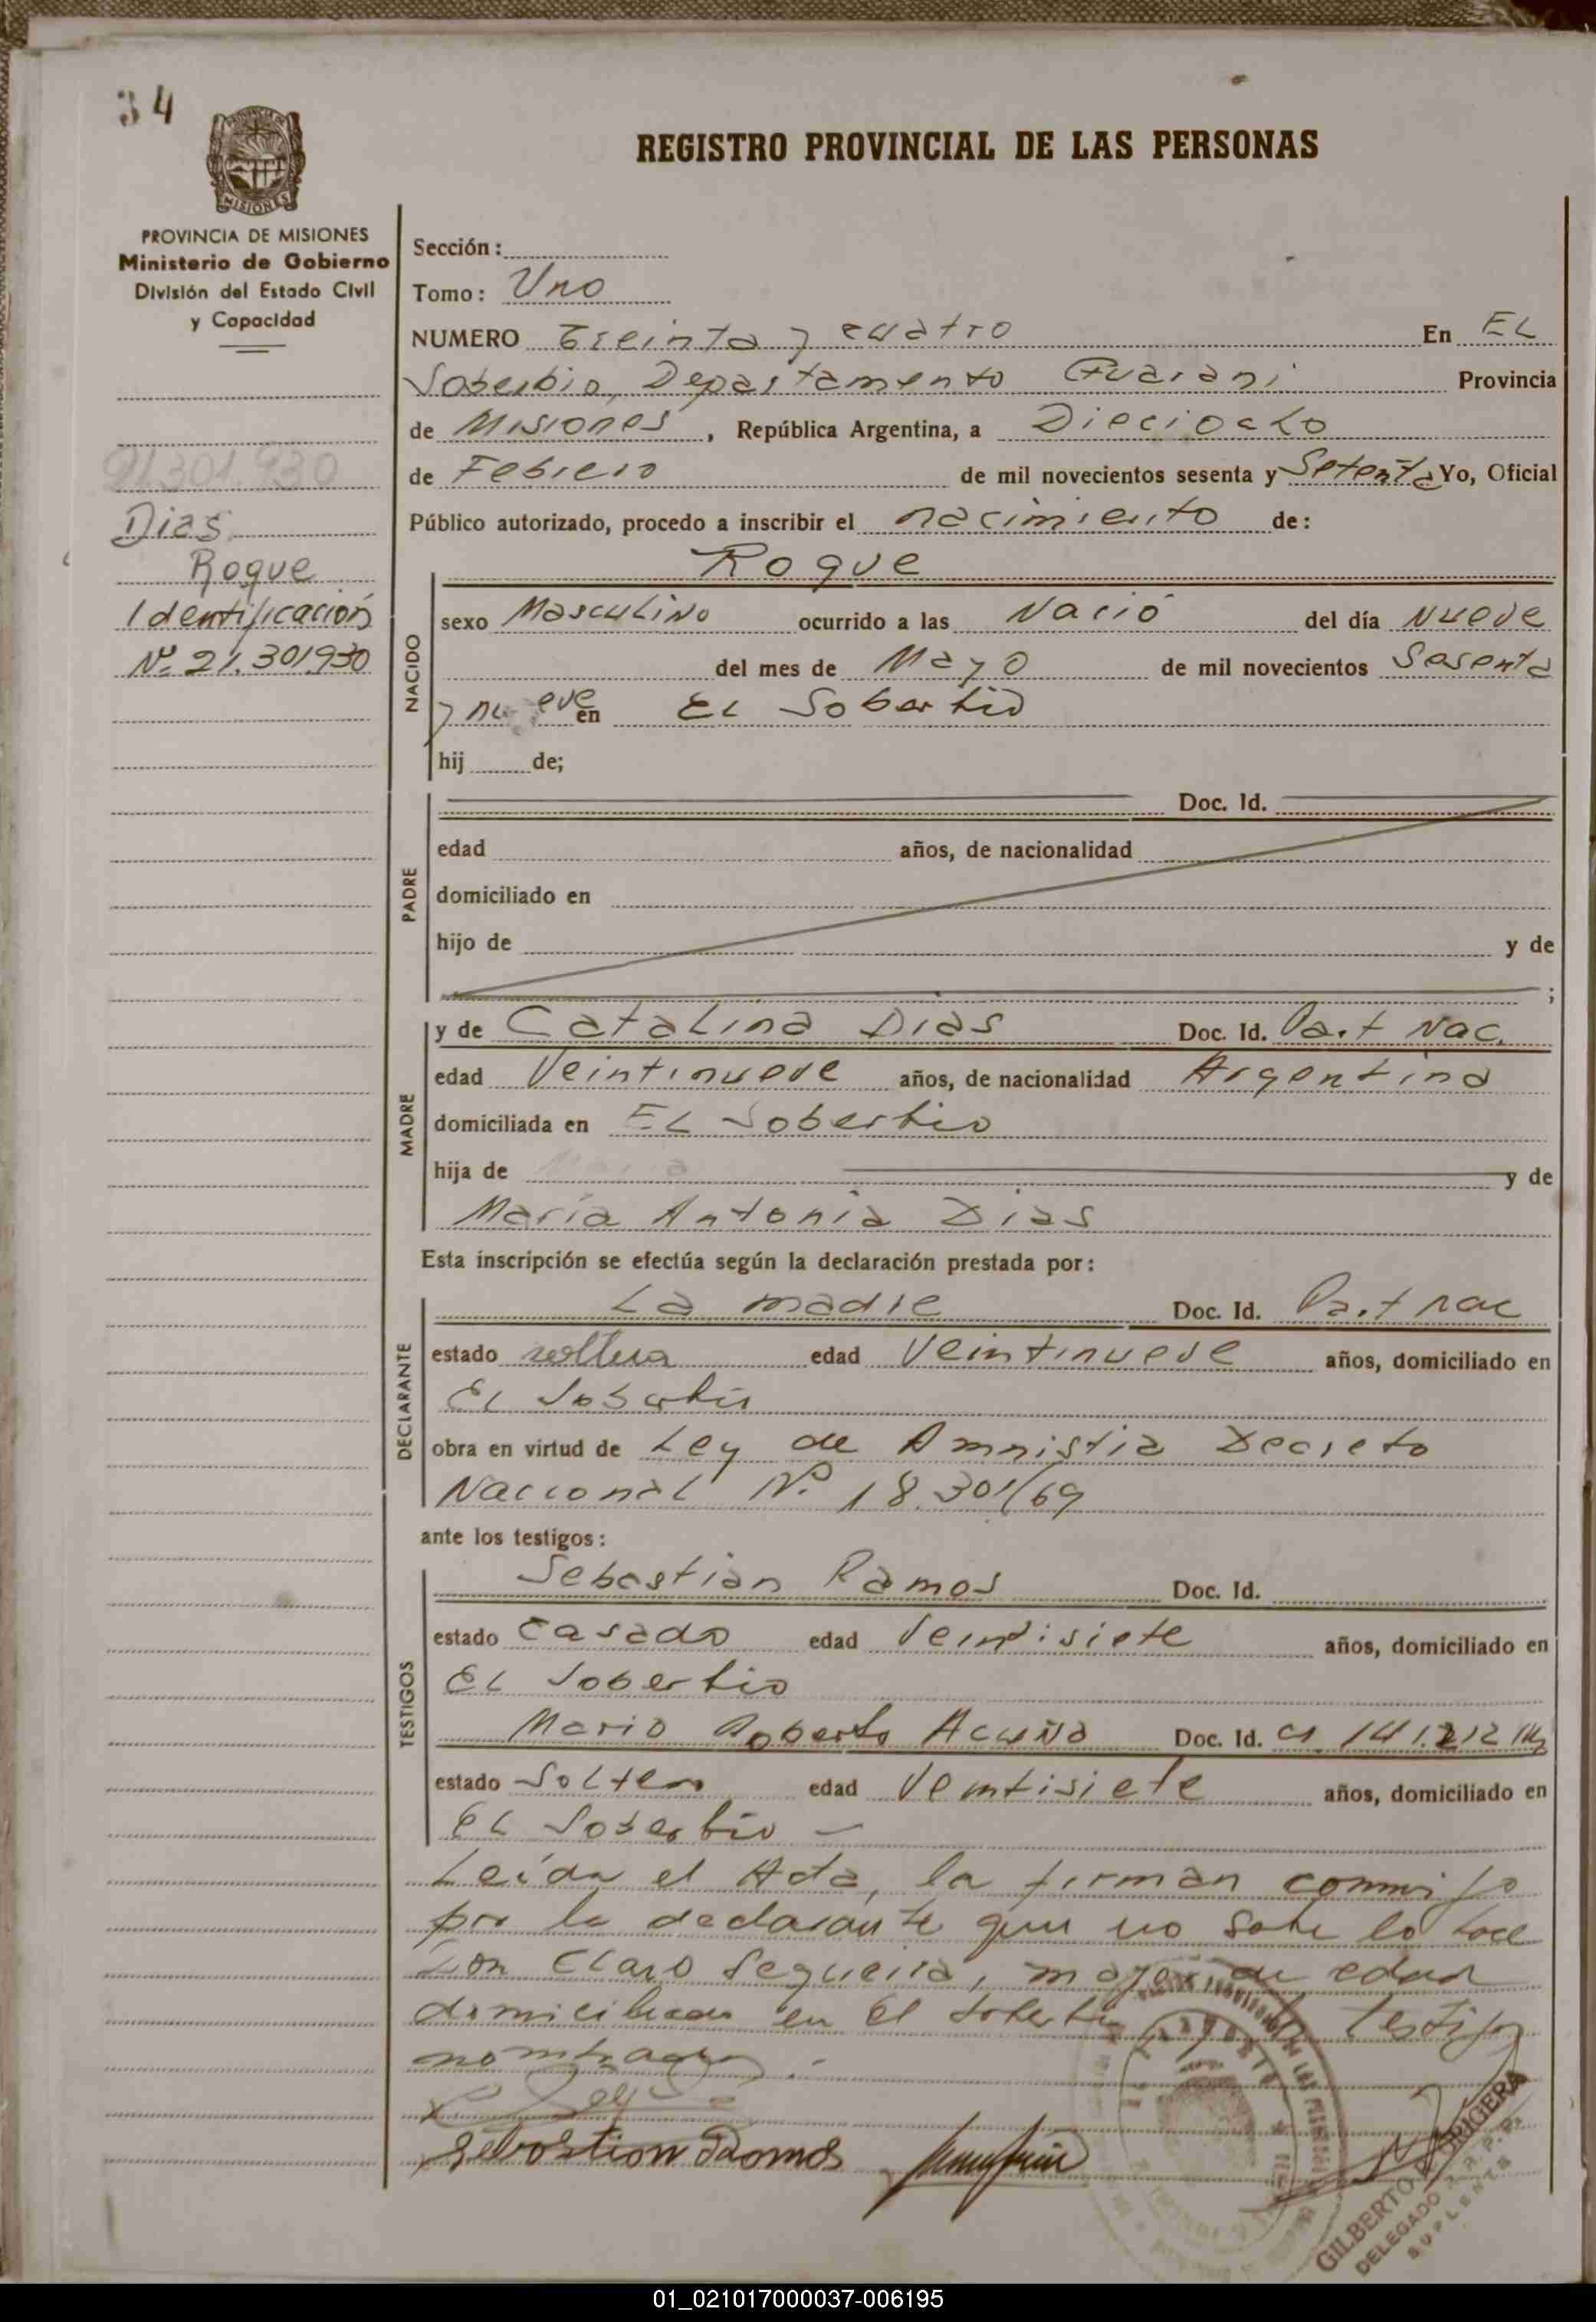 34
MISIONES
REGISTRO PROVINCIAL DE LAS PERSONAS
PROVINCIA DE MISIONES
Ministerio de Gobierno
División del Estado Civil
y Capacidad
21.301.930
Dias
Roque
Identificación
Nº 21.301930
Sección:
Tomo: Uno
NUMERO Treinta y cuatro En EL
Soberbio, Departamento Guarani Provincia
de Misiones, República Argentina, a Dieciocho
de Febrero de mil novecientos sesenta y Setenta Yo, Oficial
Público autorizado, procedo a inscribir el nacimiento de:
Roque
NACIDO
sexo Masculino ocurrido a las Nació del día Nueve
del mes de Mayo de mil novecientos Sesenta
y nueve en EL Soberbio
hij de;
PADRE
Doc. Id.
edad años, de nacionalidad
domiciliado en
hijo de y de
;
MADRE
y de Catalina Dias Doc. Id. Part Nac.
edad Veintinueve años, de nacionalidad Argentina
domiciliada en EL Soberbio
hija de Maria y de
María Antonia Dias
Esta inscripción se efectúa según la declaración prestada por:
DECLARANTE
La madre Doc. Id. Part nac
estado soltera edad Veintinueve años, domiciliado en
EL Soberbio
obra en virtud de Ley de Amnistia Decreto
Nacional Nº 18.301/69
ante los testigos:
TESTIGOS
Sebastian Ramos Doc. Id.
estado Casado edad Veintisiete años, domiciliado en
EL Soberbio
Mario Roberto Acuña Doc. Id. CI 141.212
estado Soltero edad Veintisiete años, domiciliado en
EL Soberbio -
Leída el Acta, la firman conmigo
por la declarante que no sabe lo hace
Don Claro Sequeira, mayor de edad
domiciliado en El Soberbio y los testigos
nombrados.
Sebastion Ramos
GILBERTO
DELEGADO R. P. P.
SUPLENTE
01_021017000037-006195